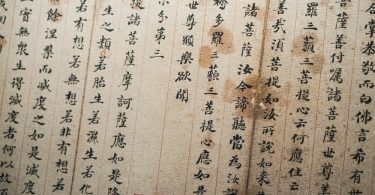 掌恭敬而白佛言希有世
菩薩善付囑諸菩薩世尊善
羅三藐三菩提心云何應住
善哉須菩提如汝所說如來
諸菩薩汝今諦聽當為汝
多羅三藐三菩提心應如是
世尊願樂欲聞
分第三
諸菩薩摩訶薩應如是降
生之類若胎生若濕生若化
若有想若無想若非有想若
餘涅槃而滅度之如是滅
無眾生得滅度者何以故